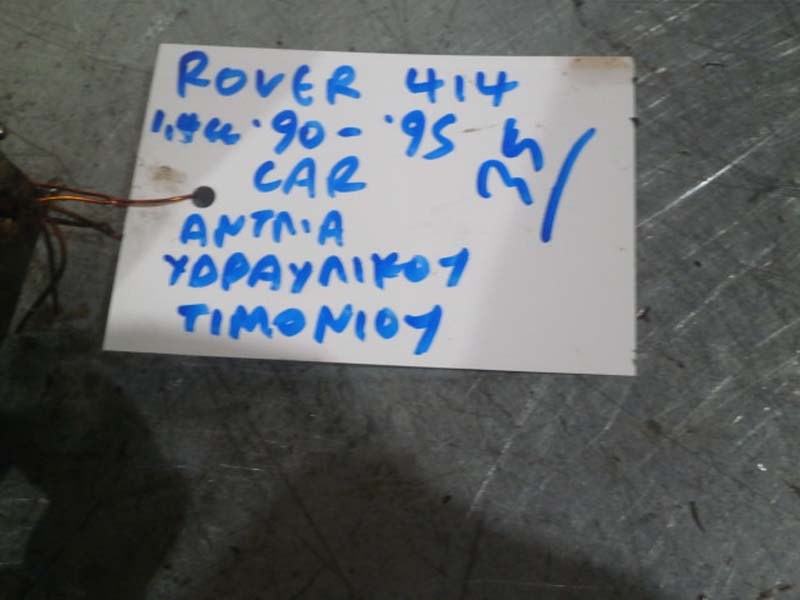 ROVER 414
1,4cc '90 - '95
CAR
ΑΝΤΛΙΑ
ΥΔΡΑΥΛΙΚΟΥ
ΤΙΜΟΝΙΟΥ